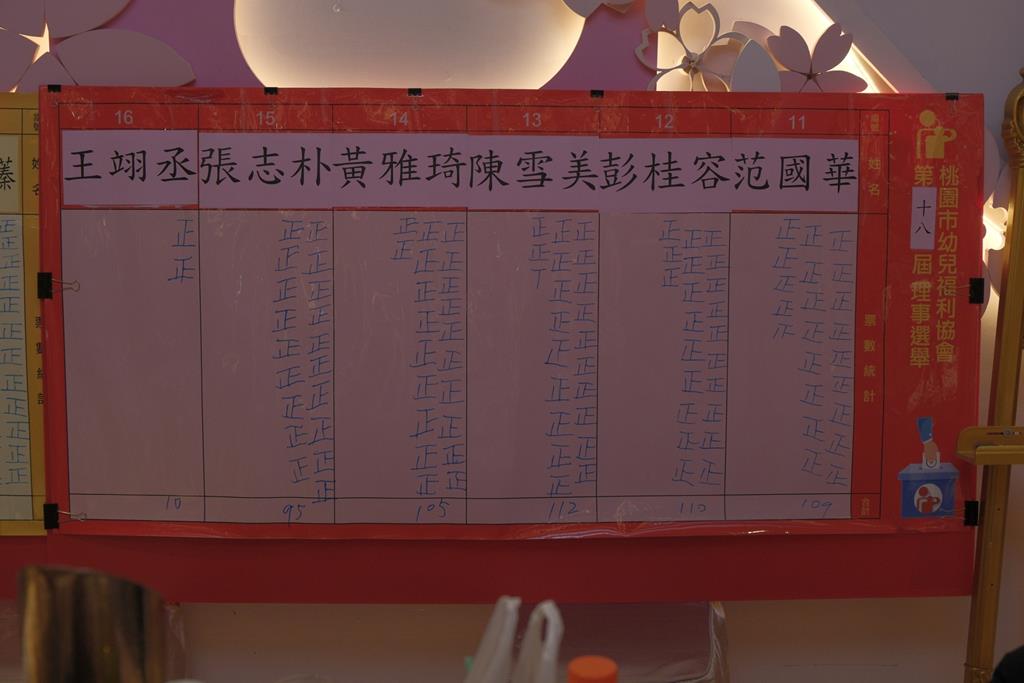 桃園市幼兒福利協會
第十八屆理事選舉
編號 11 12 13 14 15 16
姓名 范國華 彭桂容 陳雪美 黃雅琦 張志朴 王翊丞
票數統計
正正正正 正正正正正正正正正 正正正正正正正正正
正正正 正正正正正正正正正 正正正正正正正正正
正正 正正正正正正正正正 正正正正正正正正正
正正 正正正正正正正正正 正正正正正正正正正
正正正正正正正正正 正正正正正正正正正正
正正
合計 109 110 112 105 95 10
姓名
票數統計